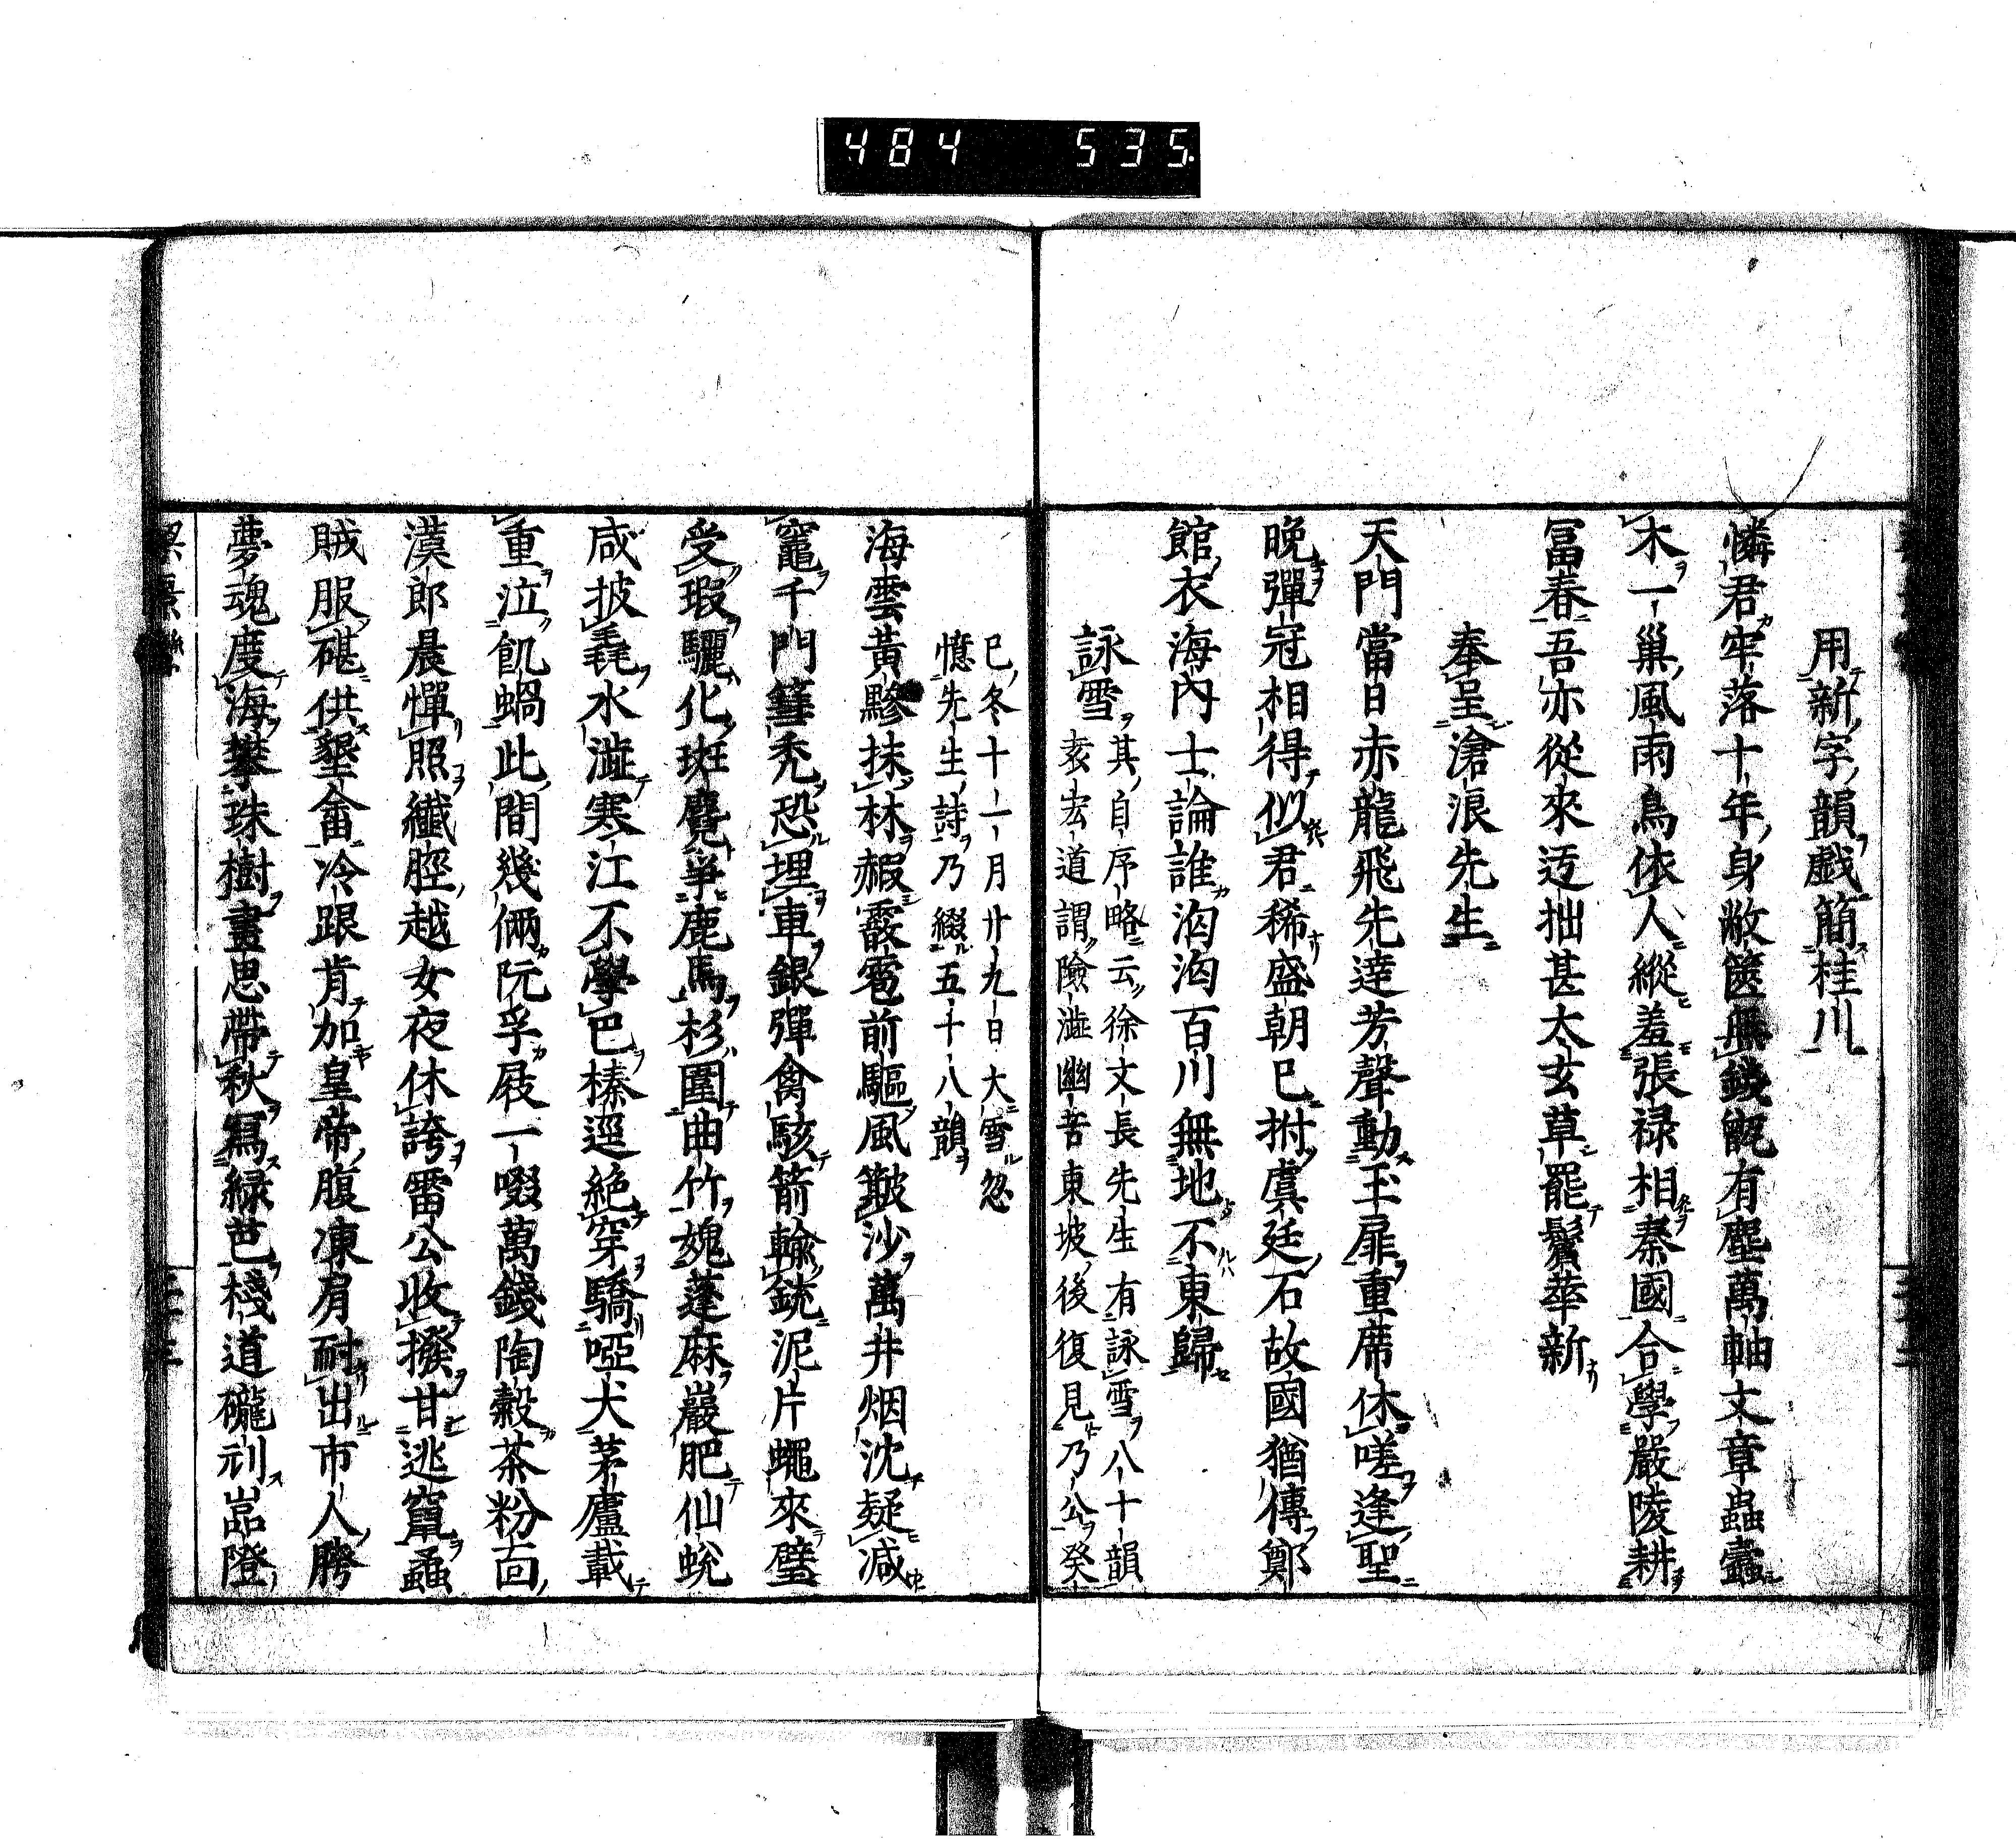 484 535
用新字韻戯簡桂川
憐君牢落十年身敝篋無錢甑有塵萬軸文章蟲蠹
木一巢風雨鳥依人縱羞張禄相秦國合學嚴陵耕
冨春吾亦從來迃拙甚太玄草罷鬢華新
奉呈滄浪先生
天門當日赤龍飛先達芳聲動玉扉重席休嗟逢聖
晚彈冠相得似君稀盛朝已拊虞廷石故國猶傳鄭
館衣海內士論誰洶洶百川無地不東歸
詠雪
其自序略云徐文長先生有詠雪八十韻
袁宏道謂險澁幽苦東坡後復見乃公癸
巳冬十一月廿九日大雪忽
憶先生詩乃綴五十八韻
海雲黃黪抹林赧霰雹前驅風皺沙萬井烟沈疑減
竈千門篲禿恐埋車銀彈禽駭箭輸銃泥片蠅來璧
受瑕驪化斑麑爭鹿馬杉圍曲竹媿蓬麻巖肥仙蛻
咸披毳水澁寒江不學巴榛逕絶穿驕啞犬茅廬載
重泣飢蝸此間幾倆阮孚屐一啜萬錢陶穀茶粉面
漢郎晨憚照纖脛越女夜休誇雷公收撥甘逃竄蝨
賊服磓供墾畬冷跟肯加皇帝腹凍肩耐出市人胯
夢魂度海攀珠樹畫思帶秋寫緑芭棧道礲刋嵓隥